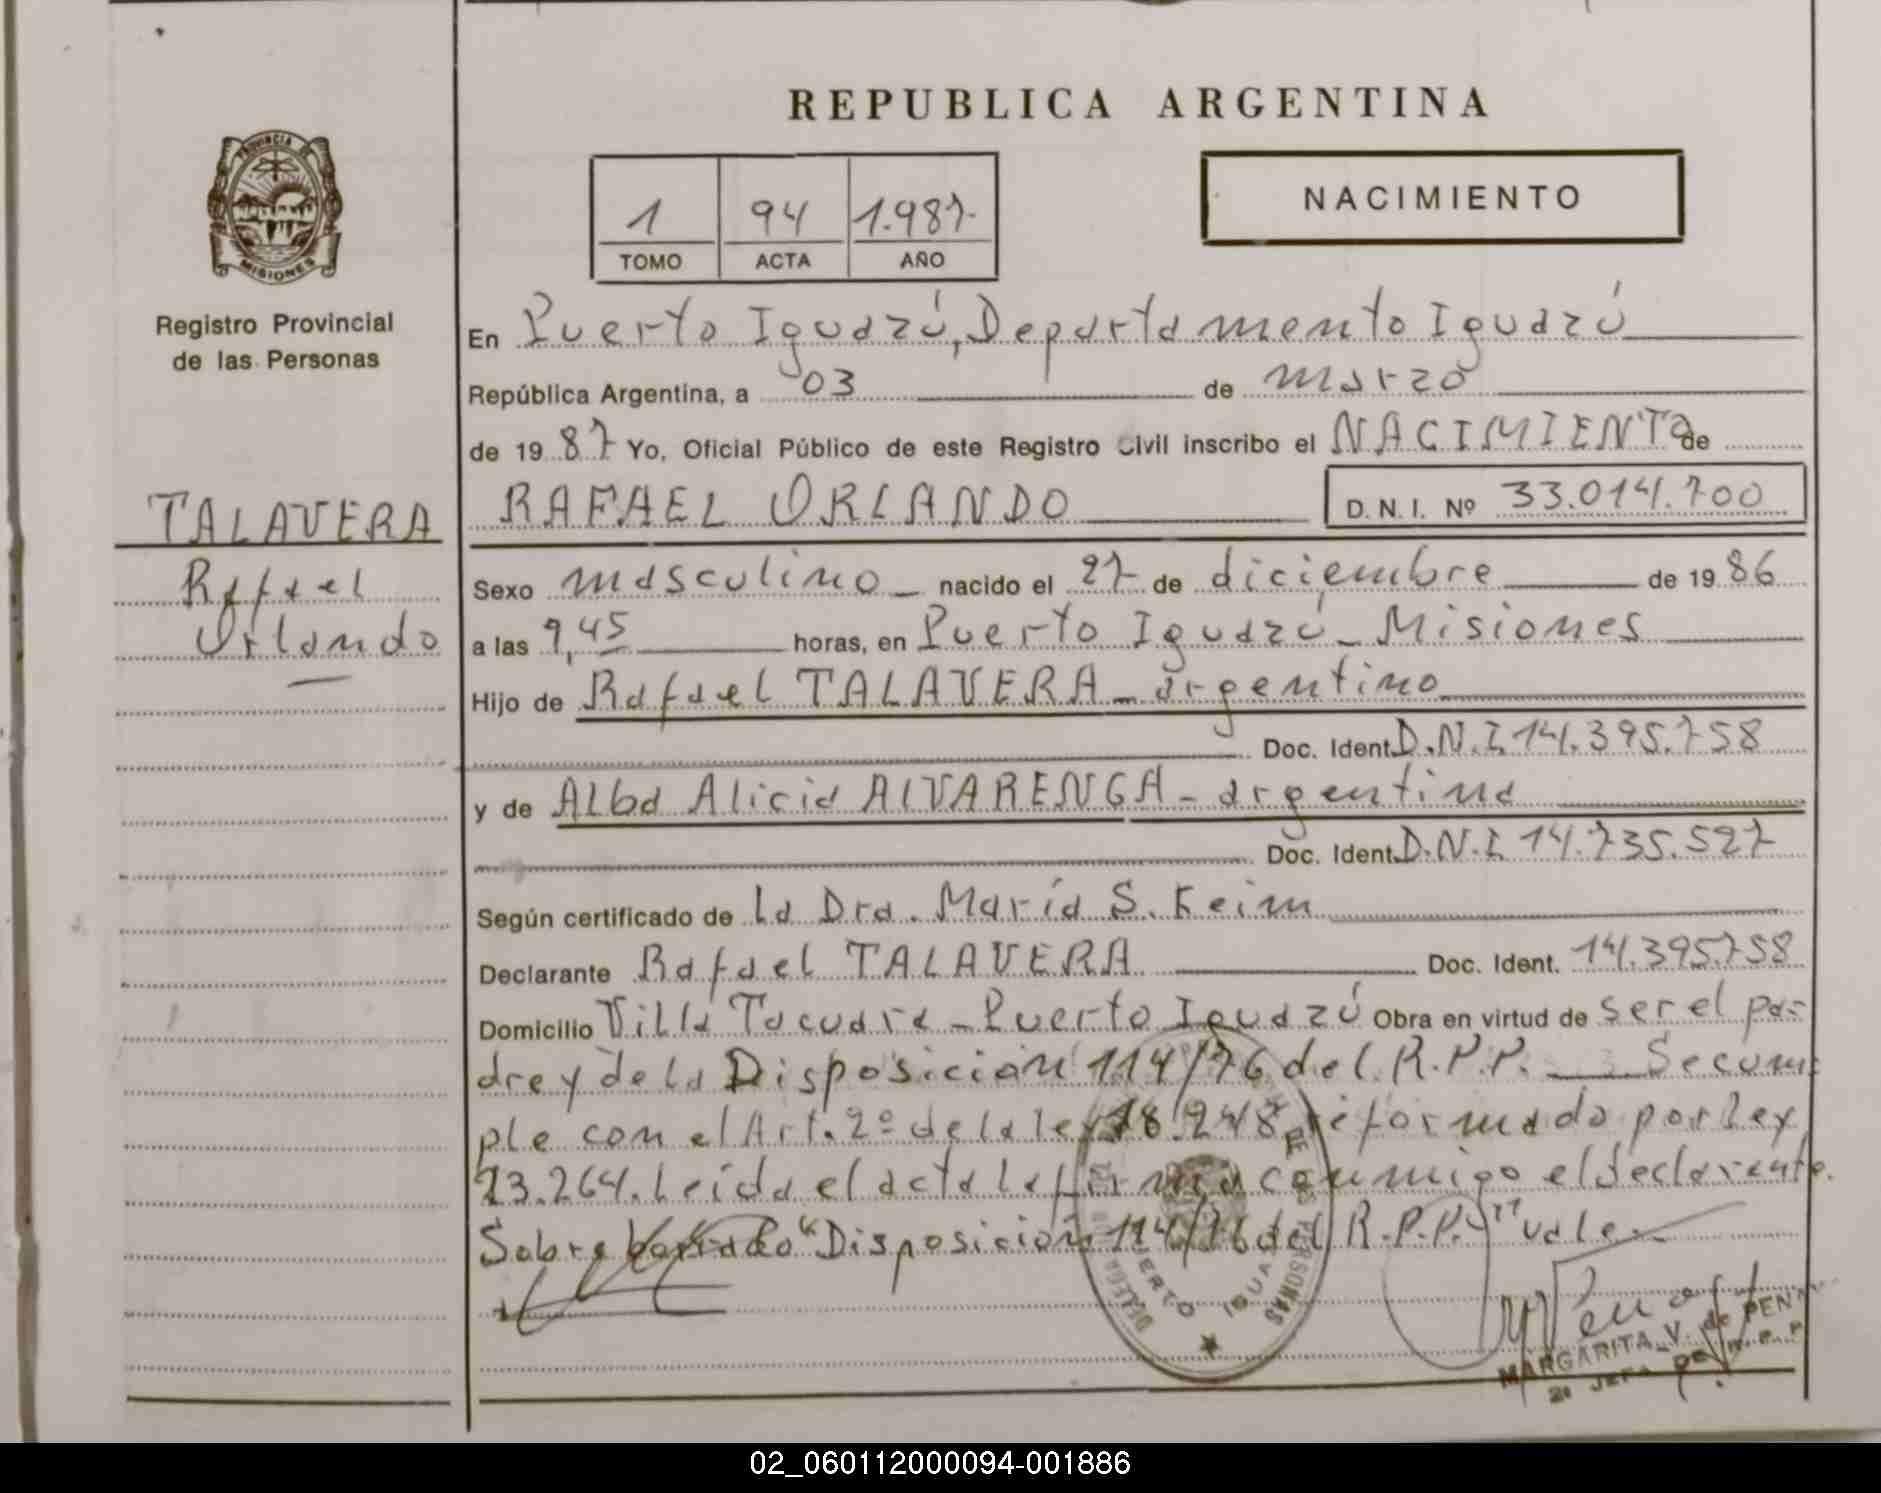 REPUBLICA ARGENTINA
PROVINCIA DE
MISIONES
Registro Provincial
de las Personas
1 94 1.987-
TOMO ACTA AÑO
NACIMIENTO
En Puerto Iguazú, Departamento Iguazú
República Argentina, a 03 de marzo
de 19 87 Yo, Oficial Público de este Registro Civil inscribo el NACIMIENTO de
TALAVERA
Rafael
Orlando
RAFAEL ORLANDO D.N.I. Nº 33.014.700
Sexo masculino nacido el 27 de diciembre de 19 86
a las 9,45 horas, en Puerto Iguazú - Misiones
Hijo de Rafael TALAVERA - argentino
Doc. Ident. D.N.I. 14.395.758
y de Alba Alicia ALVARENGA - argentina
Doc. Ident. D.N.I. 14.735.527
Según certificado de La Dra. María S. Keim
Declarante Rafael TALAVERA Doc. Ident. 14.395.758
Domicilio Villa Tacuara - Puerto Iguazú Obra en virtud de ser el pa-
dre y de la Disposición 114/76 del R.P.P. Se cum
ple con el Art. 2º de la ley 18.248 reformado por Ley
23.264. Leída el acta la firma conmigo el declarante.
Sobre borrado "Disposición 114/76 del R.P.P." vale.
PUERTO IGUA
PERSONAS
MARGARITA V. de PEN
2ª JEFA
02_060112000094-001886